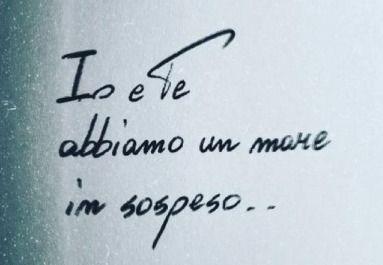 Io e Te
abbiamo un mare
in sospeso..